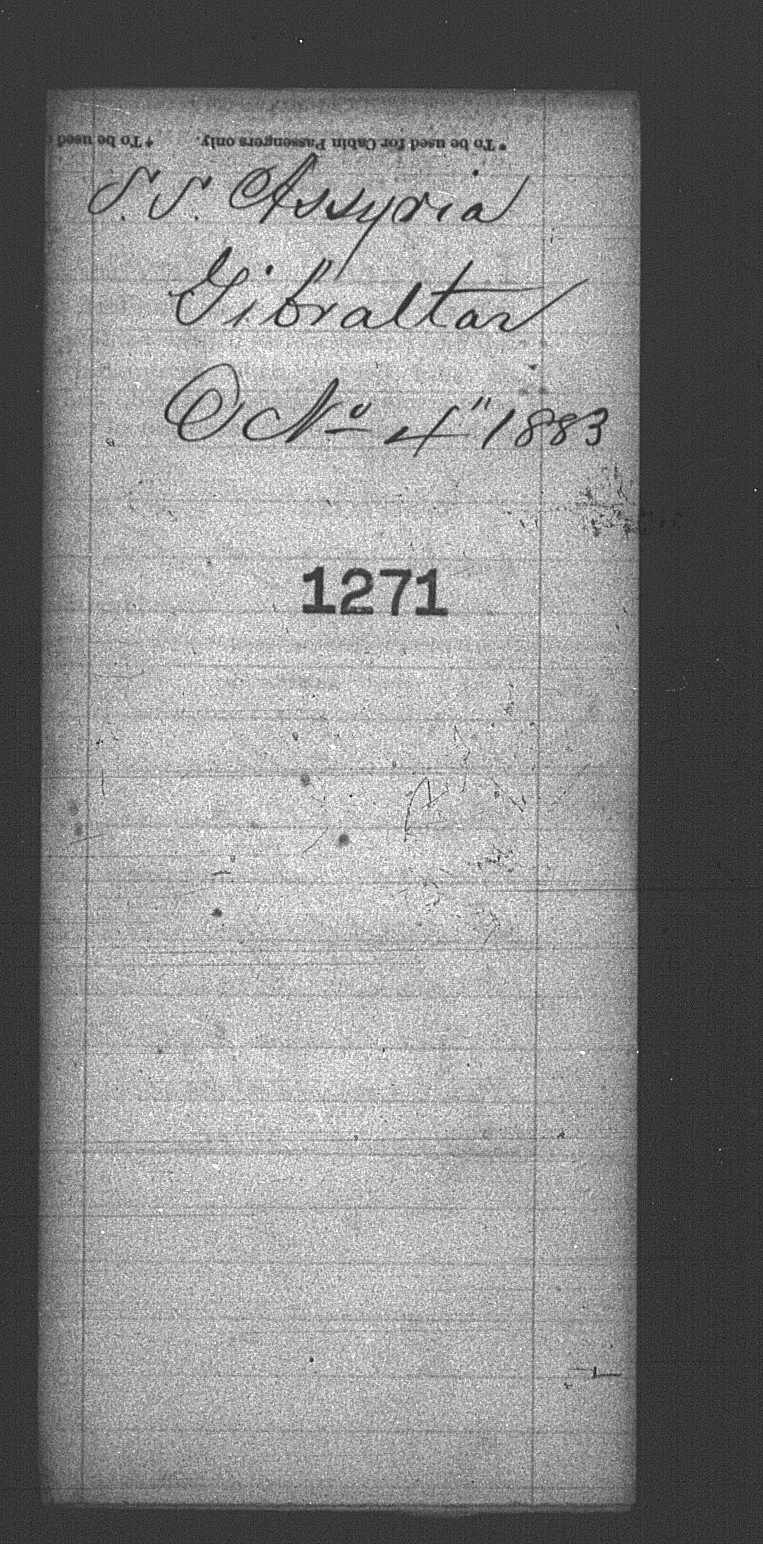 * To be used for Cabin Passengers only. † To be used
S. S. Assyria
Gibraltar
O No 4" 1883
1271